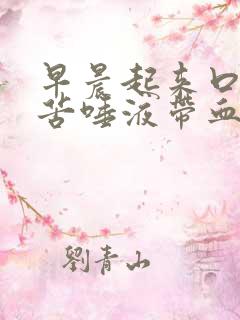 早晨起来口
苦唾液带血
劉青山